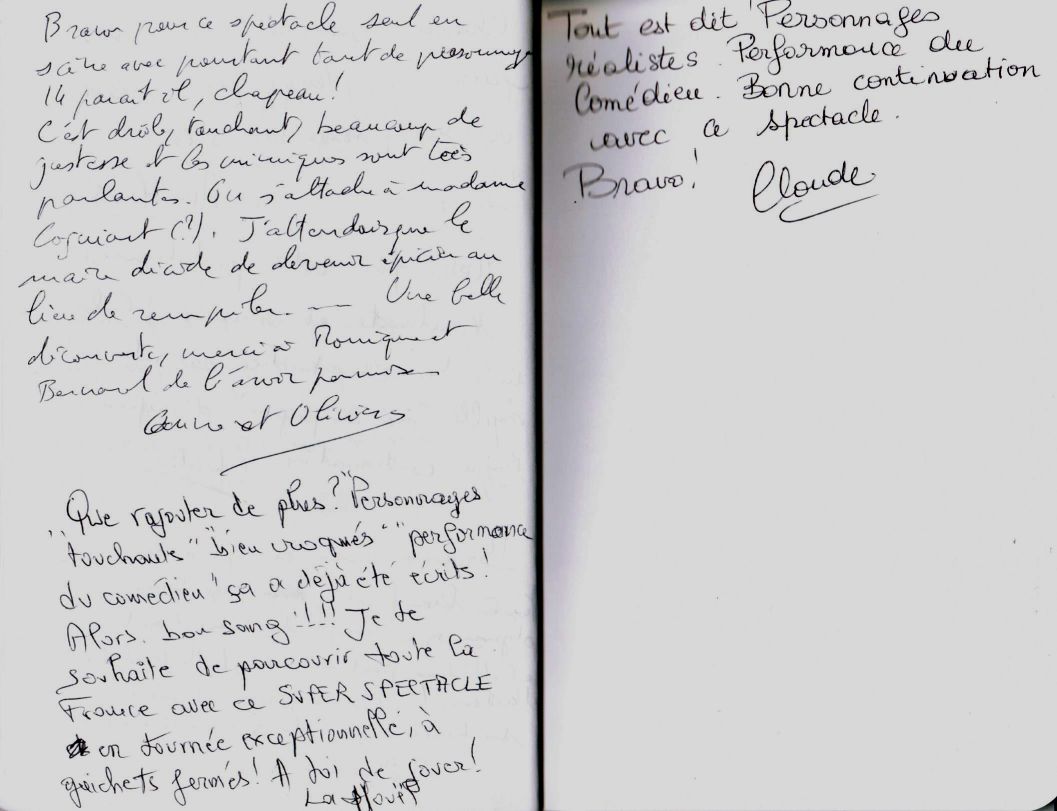 Bravo pour ce spectacle seul en
scène avec pourtant tant de personnages
14 parait il, chapeau!
C'est drôle, touchant, beaucoup de
justesse et les mimiques sont très
parlantes. On s'attache à madame
(?). J'attendais que le
maire décide de devenir épicier au
lieu de rempiler. — Une belle
découverte, merci à Monique et
Bernard de l'avoir permise
et Olivier
"Que rajouter de plus? "Personnages
touchants" "bien croqués" "performance
du comédien" ça a déjà été écrits!
Alors. bon sang!!!! Je te
souhaite de parcourir toute la
France avec ce SUPER SPECTACLE
en tournée exceptionnelle, à
guichets fermés! A toi de jouer!
La
Tout est dit! Personnages
réalistes. Performance du
Comédien. Bonne continuation
avec ce spectacle.
Bravo! Claude